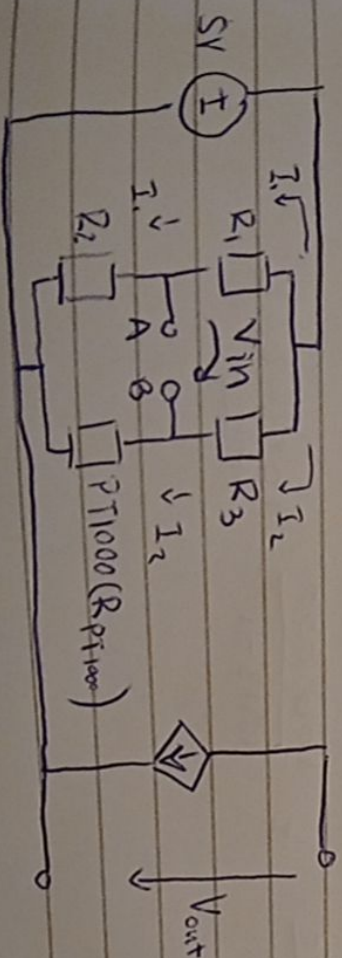 5V
I
I₁
I₁
R₁
R₂
A
B
Vin
R₃
I₂
I₂
PT1000(R_PT1000)
Vout